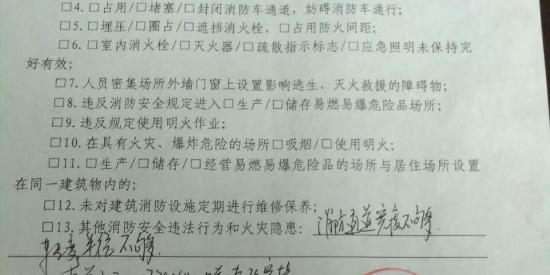 □4. □占用/□堵塞/□封闭消防车通道，妨碍消防车通行；
□5. □埋压/□圈占/□遮挡消火栓，□占用防火间距；
□6. □室内消火栓/□灭火器/□疏散指示标志/□应急照明未保持完
好有效；
□7. 人员密集场所外墙门窗上设置影响逃生、灭火救援的障碍物；
□8. 违反消防安全规定进入□生产/□储存易燃易爆危险品场所；
□9. 违反规定使用明火作业；
□10. 在具有火灾、爆炸危险的场所□吸烟/□使用明火；
□11. □生产/□储存/□经营易燃易爆危险品的场所与居住场所设置
在同一建筑物内的；
□12. 未对建筑消防设施定期进行维修保养；
□13. 其他消防安全违法行为和火灾隐患：消防通道宽度不够
不够.